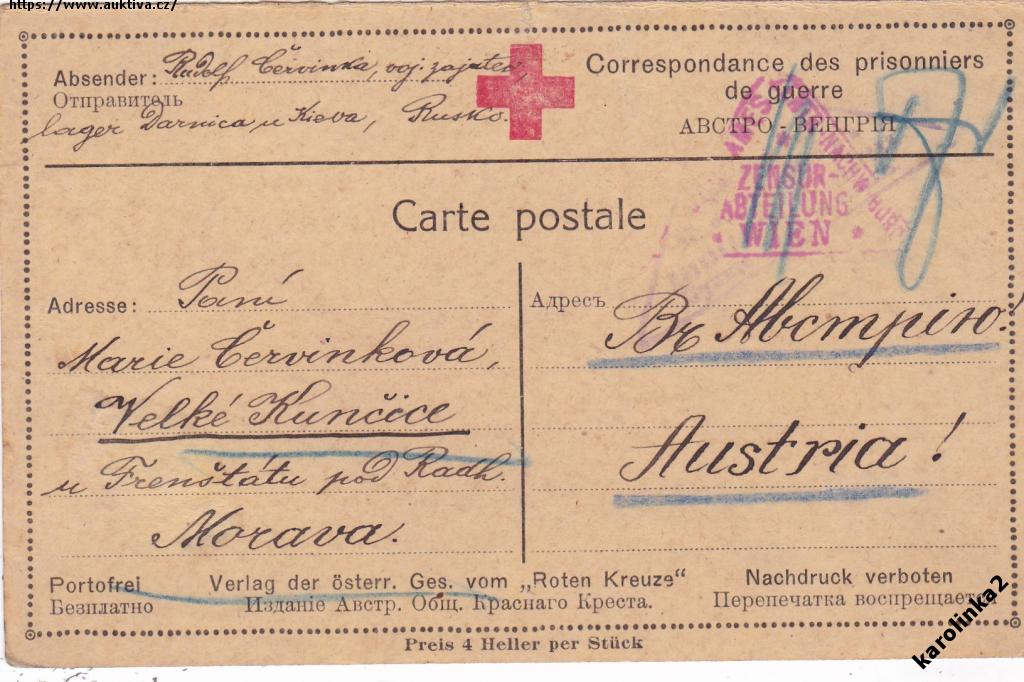 https://www.auktiva.cz/
Absender: Rudolf Červinka, voj. zajatec,
Отправитель
lager Darnica, u Kieva, Rusko.
Correspondance des prisonniers
de guerre
АВСТРО-ВЕНГРІЯ
ZENSUR-
ABTEILUNG
* WIEN *
Carte postale
Adresse: Paní
Marie Červinková,
Velké Kunčice
u Frenštátu pod Radh.
Morava.
Адресъ
Въ Австрію!
Austria!
Portofrei
Безплатно
Verlag der österr. Ges. vom „Roten Kreuze“
Изданіе Австр. Общ. Краснаго Креста.
Nachdruck verboten
Перепечатка воспрещается
Preis 4 Heller per Stück
karolinka2